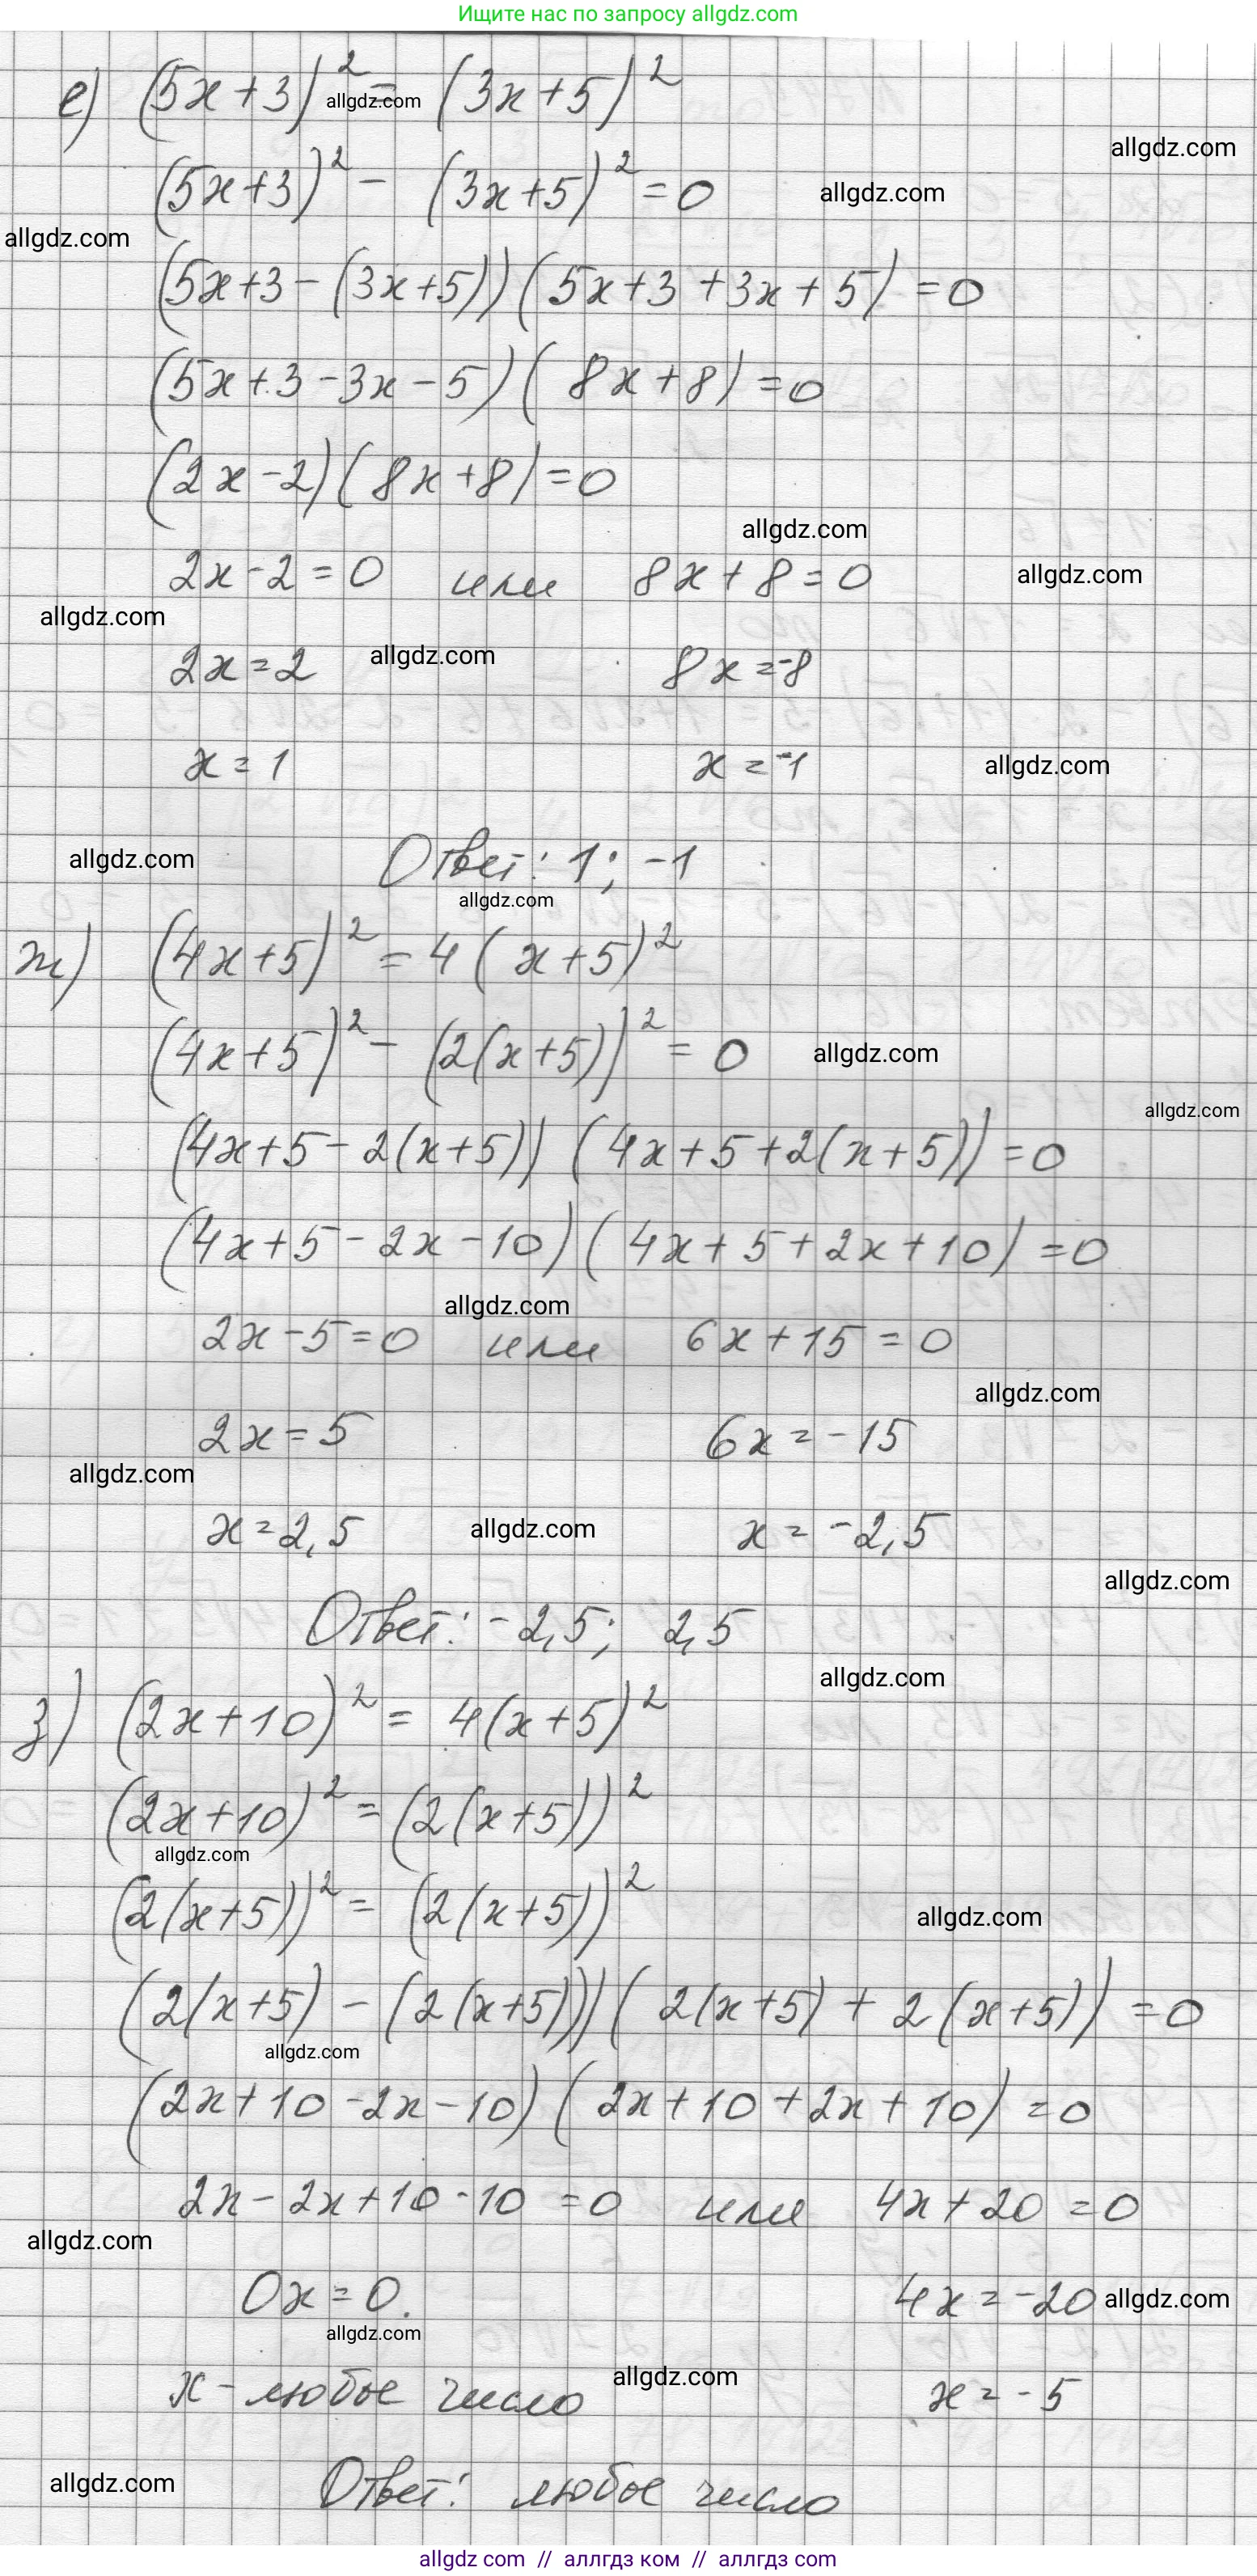 Ищите нас по запросу allgdz.com
е) (5x+3)² = (3x+5)²
allgdz.com
allgdz.com
(5x+3)² - (3x+5)² = 0
allgdz.com
allgdz.com
(5x+3-(3x+5))(5x+3+3x+5) = 0
(5x+3-3x-5)(8x+8) = 0
(2x-2)(8x+8) = 0
allgdz.com
2x-2=0 или 8x+8=0
allgdz.com
allgdz.com
2x=2 8x=-8
allgdz.com
x=1 x=-1
allgdz.com
Ответ: 1; -1
allgdz.com
allgdz.com
ж) (4x+5)² = 4(x+5)²
(4x+5)² - (2(x+5))² = 0
allgdz.com
allgdz.com
(4x+5-2(x+5))(4x+5+2(x+5)) = 0
(4x+5-2x-10)(4x+5+2x+10) = 0
allgdz.com
2x-5=0 или 6x+15=0
allgdz.com
2x=5 6x=-15
allgdz.com
x=2,5 x=-2,5
allgdz.com
allgdz.com
Ответ: -2,5; 2,5
allgdz.com
з) (2x+10)² = 4(x+5)²
(2x+10)² = (2(x+5))²
allgdz.com
(2(x+5))² = (2(x+5))²
allgdz.com
(2(x+5)-(2(x+5)))(2(x+5)+2(x+5)) = 0
allgdz.com
(2x+10-2x-10)(2x+10+2x+10) = 0
2x-2x+10-10=0 или 4x+20=0
allgdz.com
0x=0. 4x=-20
allgdz.com
allgdz.com
x - любое число x=-5
allgdz.com
Ответ: любое число
allgdz.com
allgdz com // аллгдз ком // аллгдз com